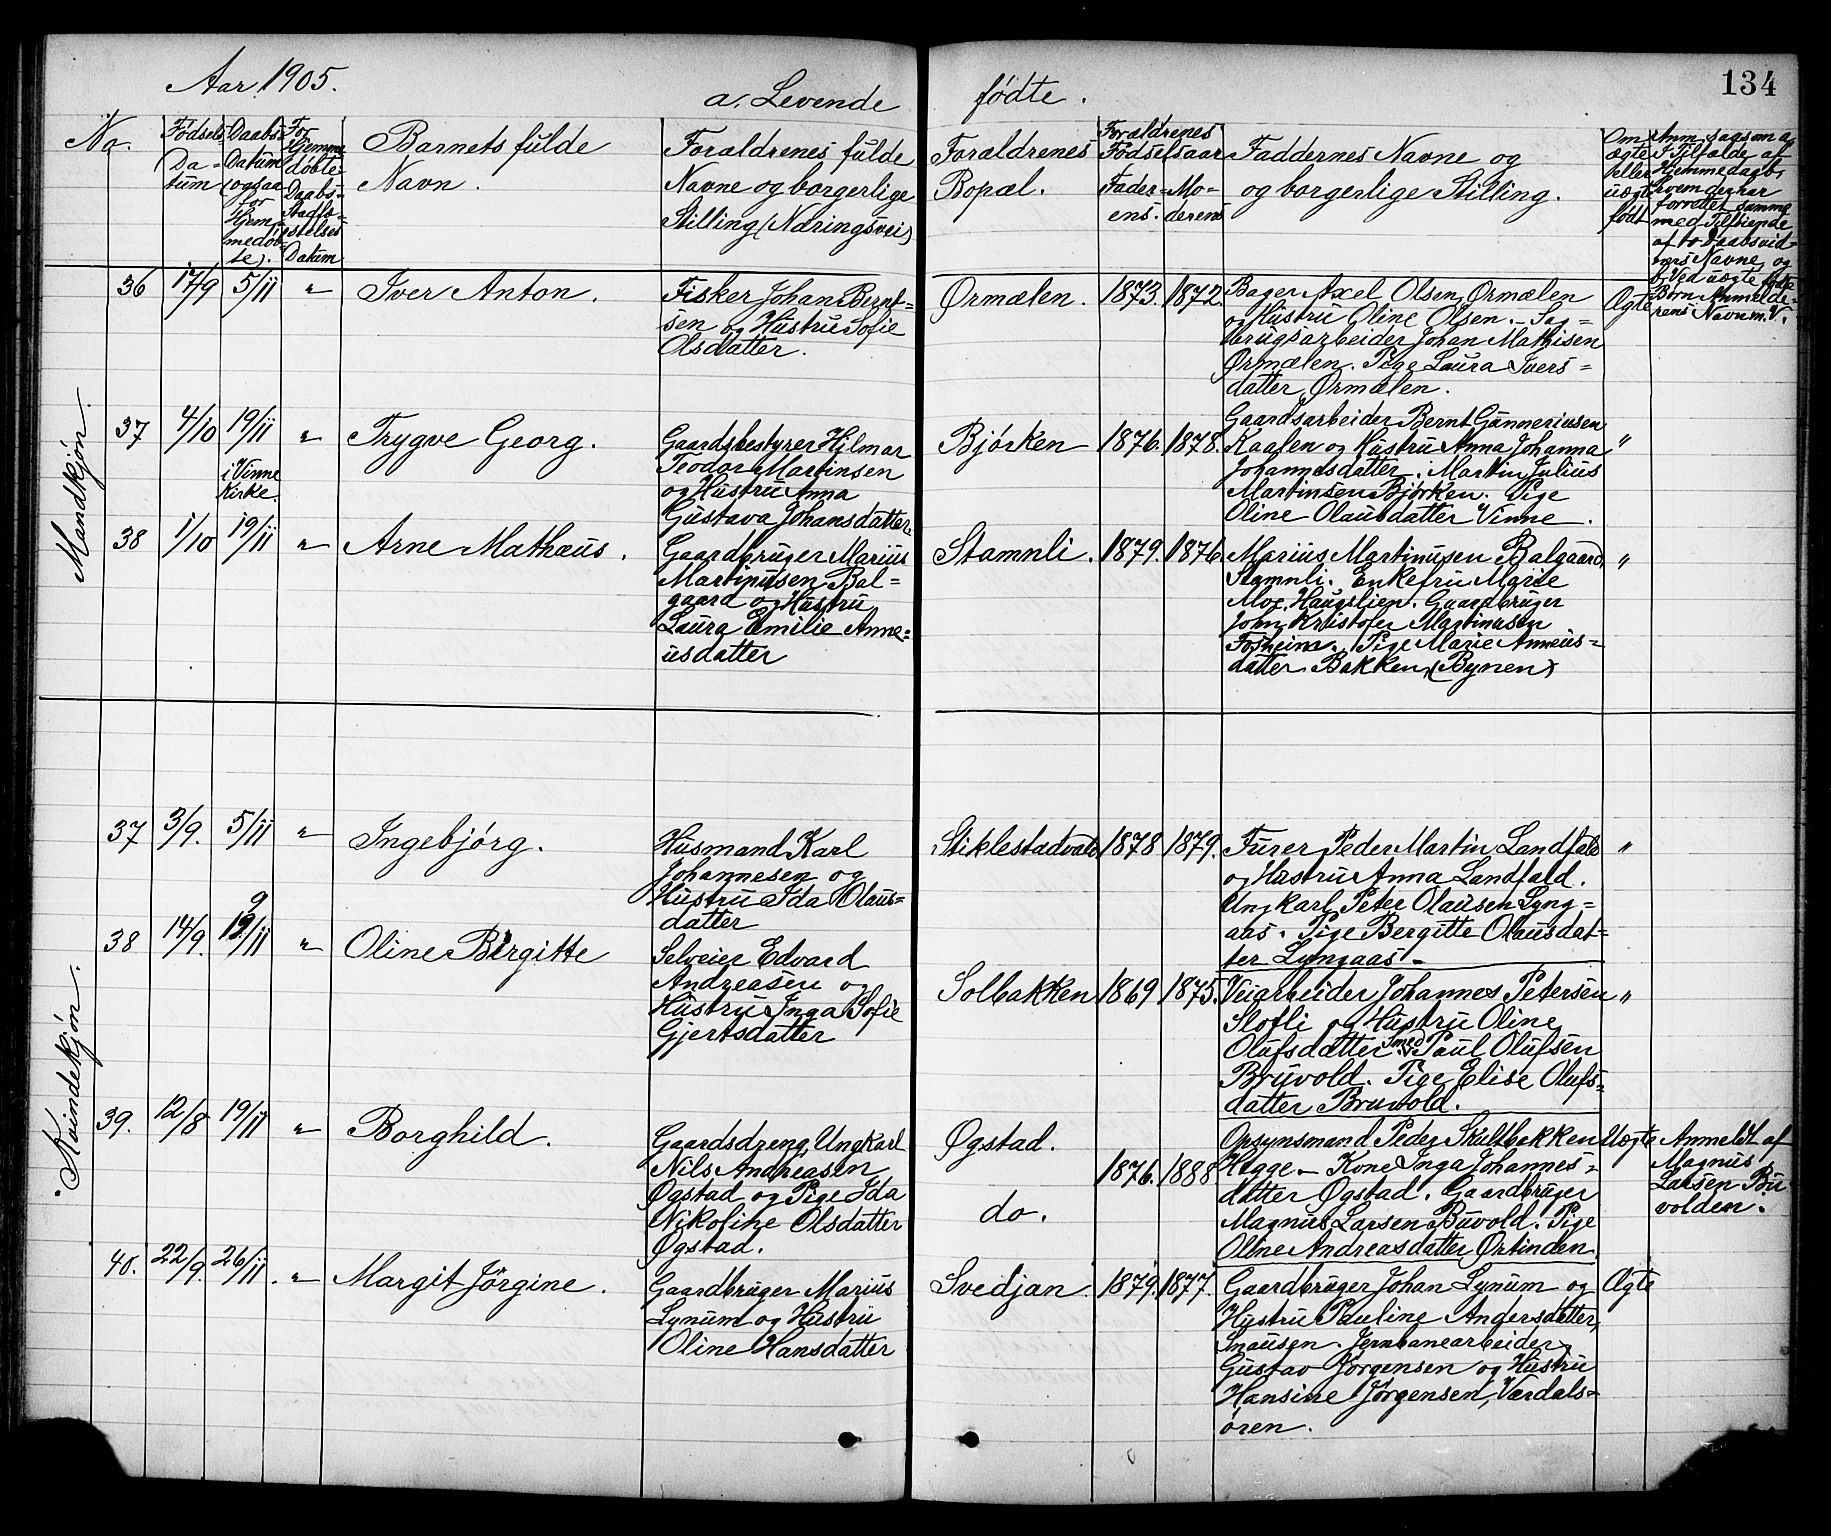 Aar 1905.
a. Levende fødte.
134
No.
Fødsels-
Da-
tum
Daabs-
Datum
(ogsaa
for
Hjem-
medøb-
te).
For
Hjemme
døbte-
Daabs-
Stadfæ-
stelses
Datum
Barnets fulde
Navn.
Forældrenes fulde
Navne og borgerlige
Stilling (Næringsvei)
Forældrenes
Bopæl.
Forældrenes
Fødselsaar
Fader-
ens.
Mo-
derens
Faddernes Navne og
og borgerlige Stilling.
Om
ægte
eller
uægte
født
Anm. saasom a,
I Tilfælde af
Hjemmedaab,
hvem der har
forrettet samme
med Tilføiende
af to Daabsvid-
ners Navne, og
b, Ved uægte fødte
Børn Anmelde-
rens Navn m. V.
Mandkjøn.
36
17/9
5/11
"
Iver Anton.
Fisker Johan Bernt-
sen og Hustru Sofie
Olsdatter.
Ørmælen.
1873.
1872.
Bager Axel Olsen Ørmælen
og Hustru Oline Olsen. - Sag-
brugsarbeider Johan Mathisen
Ørmælen. Pige Laura Ivers-
datter Ørmælen.
Ægte
37
4/10
19/11
i Vinne
Kirke.
"
Trygve Georg.
Gaardsbestyrer Hjlmar
Teodor Martinsen
og Hustru Anna
Gustava Johansdatter.
Bjørken
1876.
1878.
Gaardsarbeider Bernt Gunneriusen
Kaalen og Hustru Anna Johanna
Johannesdatter. Martin Julius
Martinsen Bjørken. Pige
Oline Olausdatter Vinne.
"
38
1/10
19/11
"
Arne Mathæus.
Gaardbruger Marius
Martinusen Bal-
gaard og Hustru
Laura Emilie Anne-
usdatter
Stamnli.
1879.
1876.
Marius Martinusen Balgaard,
Stamnli. Enkefru Marie
Moe, Haugslien. Gaardbruger
John Kristofer Martinusen
Forheim. Pige Marie Anneus-
datter Bakken, (Bynen)
"
Kvindekjøn.
37
3/9.
5/11
"
Ingebjørg.
Husmand Karl
Johannesen og
Hustru Ida Olaus-
datter
Stiklestadvald
1878
1879.
Furer Peder Martin Landfald
og Hustru Anna Landfald.
Ungkarl Peter Olausen Lyng-
aas. Pige Bergitte Olausdat-
ter Lyngaas -
"
38
14/9.
19/11
"
Oline Birgitte
Selveier Edvard
Andreasen og
Hustru Inga Sofie
Gjertsdatter
Solbakken
1869
1875.
Veiarbeider Johannes Petersen
Slofli og Hustru Oline
Olufsdatter Smed Paul Olufsen
Bruvold. Pige Elise Olufs-
datter Bruvold.
"
39.
12/8
19/11
"
Borghild.
Gaardsdreng, Ungkarl
Nils Andreasen
Øgstad og Pige Ida
Nikoline Olsdatter
Øgstad.
Øgstad.
do.
1876.
1888
Opsynsmand Peder Skultbakken
Hegge - Kone Inga Johannes-
datter Øgstad. Gaardbruger
Magnus Larsen Buvold. Pige
Oline Andreasdatter Ørtinden.
Uægte
Anmeldt af
Magnus
Larsen Bu-
volden.
40.
22/9.
26/11.
"
Margit Jörgine.
Gaardbruger Marius
Lynum og Hustru
Oline Hansdatter
Svedjan.
1879.
1877.
Gaardbruger Johan Lynum og
Hustru Pauline Andersdatter,
Snausen. Jernbanearbeider
Gustav Jørgensen og Hustru
Hansine Jørgensen, Værdals-
øren.
Ægte